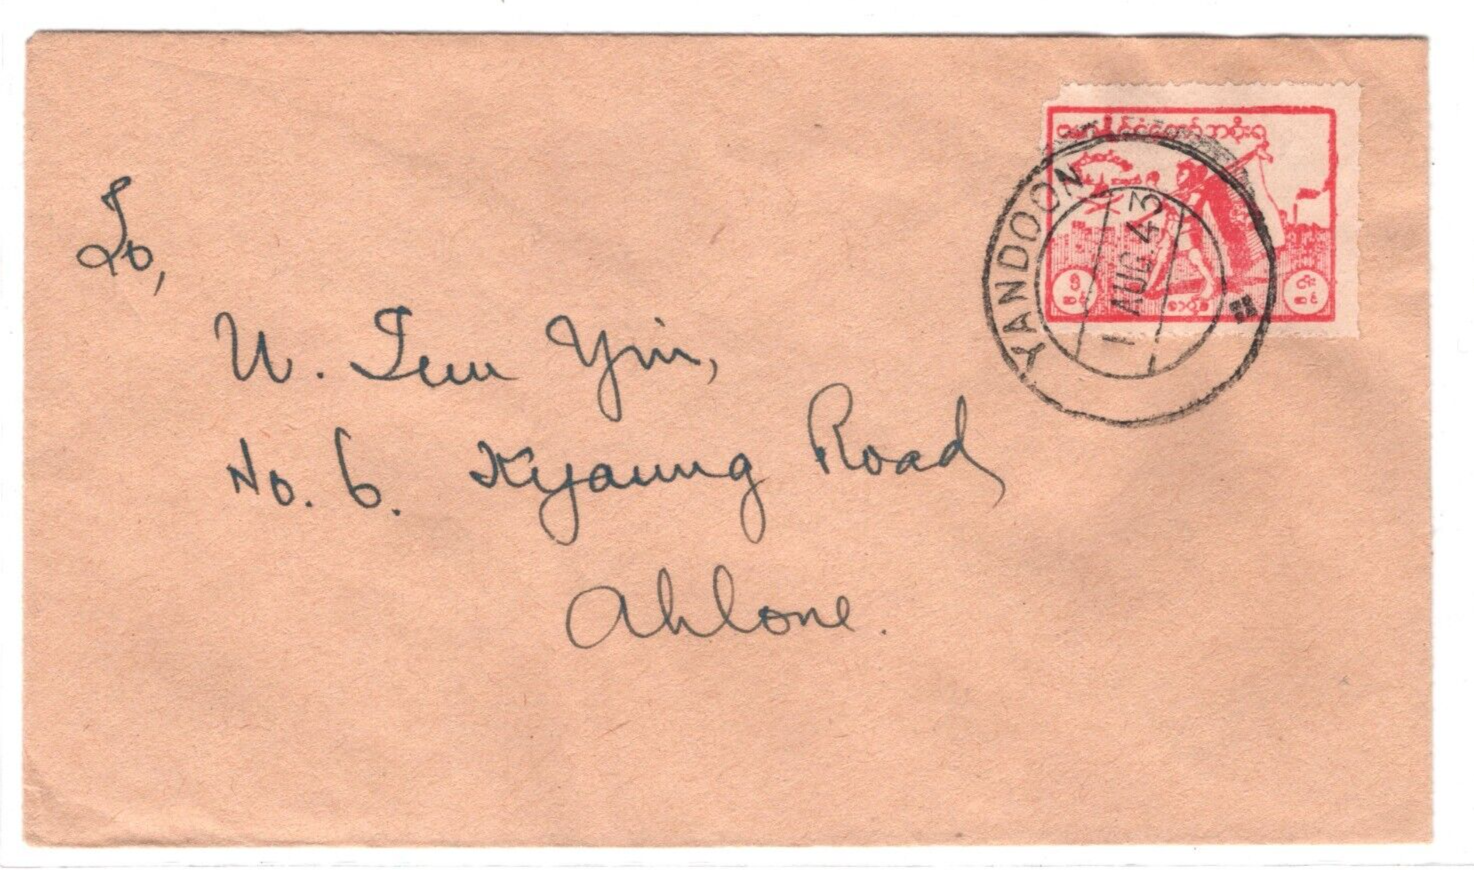 To,
U. Tun Yin,
No. 6. Kyaung Road
Ahlone.
YANDOON
AUG. 43